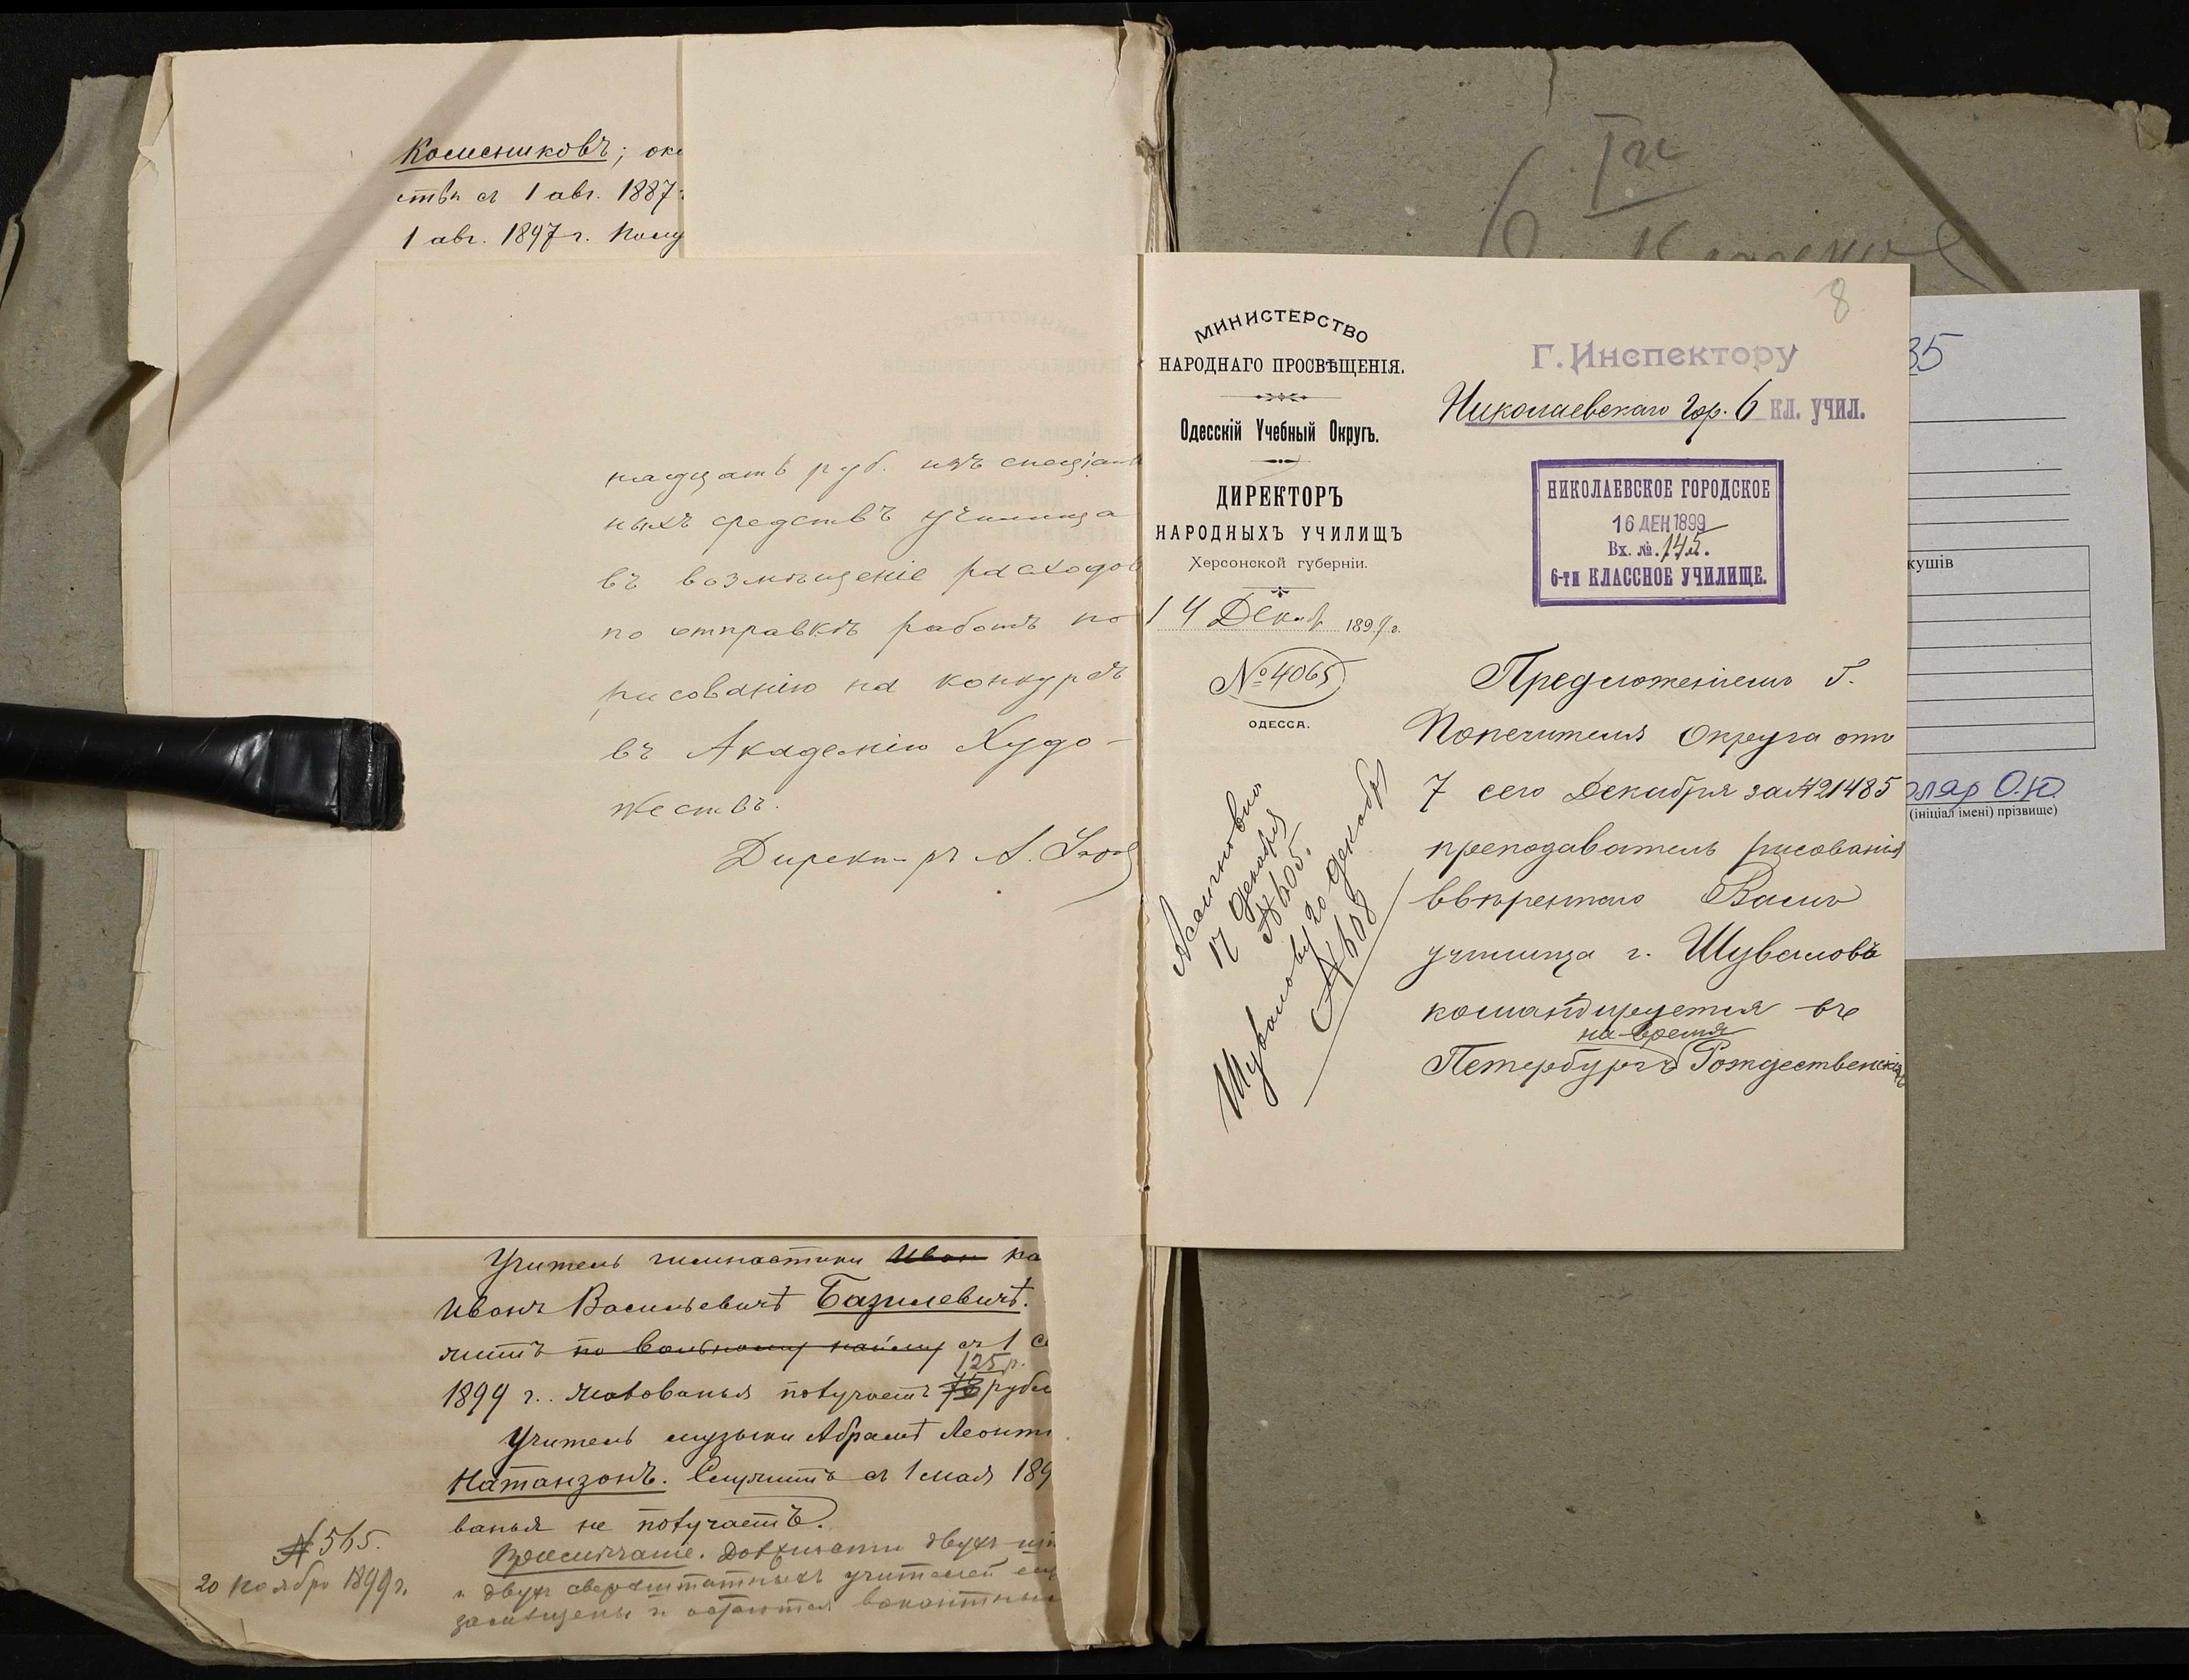 Колесниковъ; око
ств съ 1 авг. 1887
1 авг. 1897 г. Полу
надцать руб. изъ спеціаль
ныхъ средствъ училища
въ возмѣщеніе расходов
по отправкѣ работъ по
рисованію на конкурсъ
въ Академію Худо-
жествъ.
Директоръ А.
Учитель гимнастики Иван ка
Иванъ Васильевичъ Базилевичъ.
житъ по вольному найму съ 1 с
125 р.
1899 г. жалованья получаетъ 75 рубл
Учитель музыки Абрамъ Леонт
Натанзонъ. Служитъ съ 1 мая 189
ванья не получаетъ.
Примѣчаніе. Должности двухъ шт
и двухъ сверхштатныхъ учителей
замѣщены и остаются вакантны
№ 565.
20 ноября 1899 г.
IV
6
8
МИНИСТЕРСТВО
НАРОДНАГО ПРОСВѢЩЕНІЯ.
Одесскій Учебный Округъ.
ДИРЕКТОРЪ
НАРОДНЫХЪ УЧИЛИЩЪ
Херсонской губерніи.
14 Декабр 1899 г.
№ 4065
ОДЕССА.
Ассигновка
17 декабря
№ 605.
Шувалову 20 декабря
№ 608
Г. Инспектору
Николаевскаго Гор. 6 КЛ. УЧИЛ.
НИКОЛАЕВСКОЕ ГОРОДСКОЕ
16 ДЕК 1899
Вх. №
6-ти КЛАССНОЕ УЧИЛИЩЕ.
Предложеніемъ Г.
Попечителя Округа отъ
7 сего Декабря за № 21485
преподаватель рисованія
ввѣреннаго Вамъ
училища г. Шуваловъ
командируется въ
на время
Петербургъ Рождественскихъ
35
кушів
оляр О.Ю
(ініціал імені) прізвище)